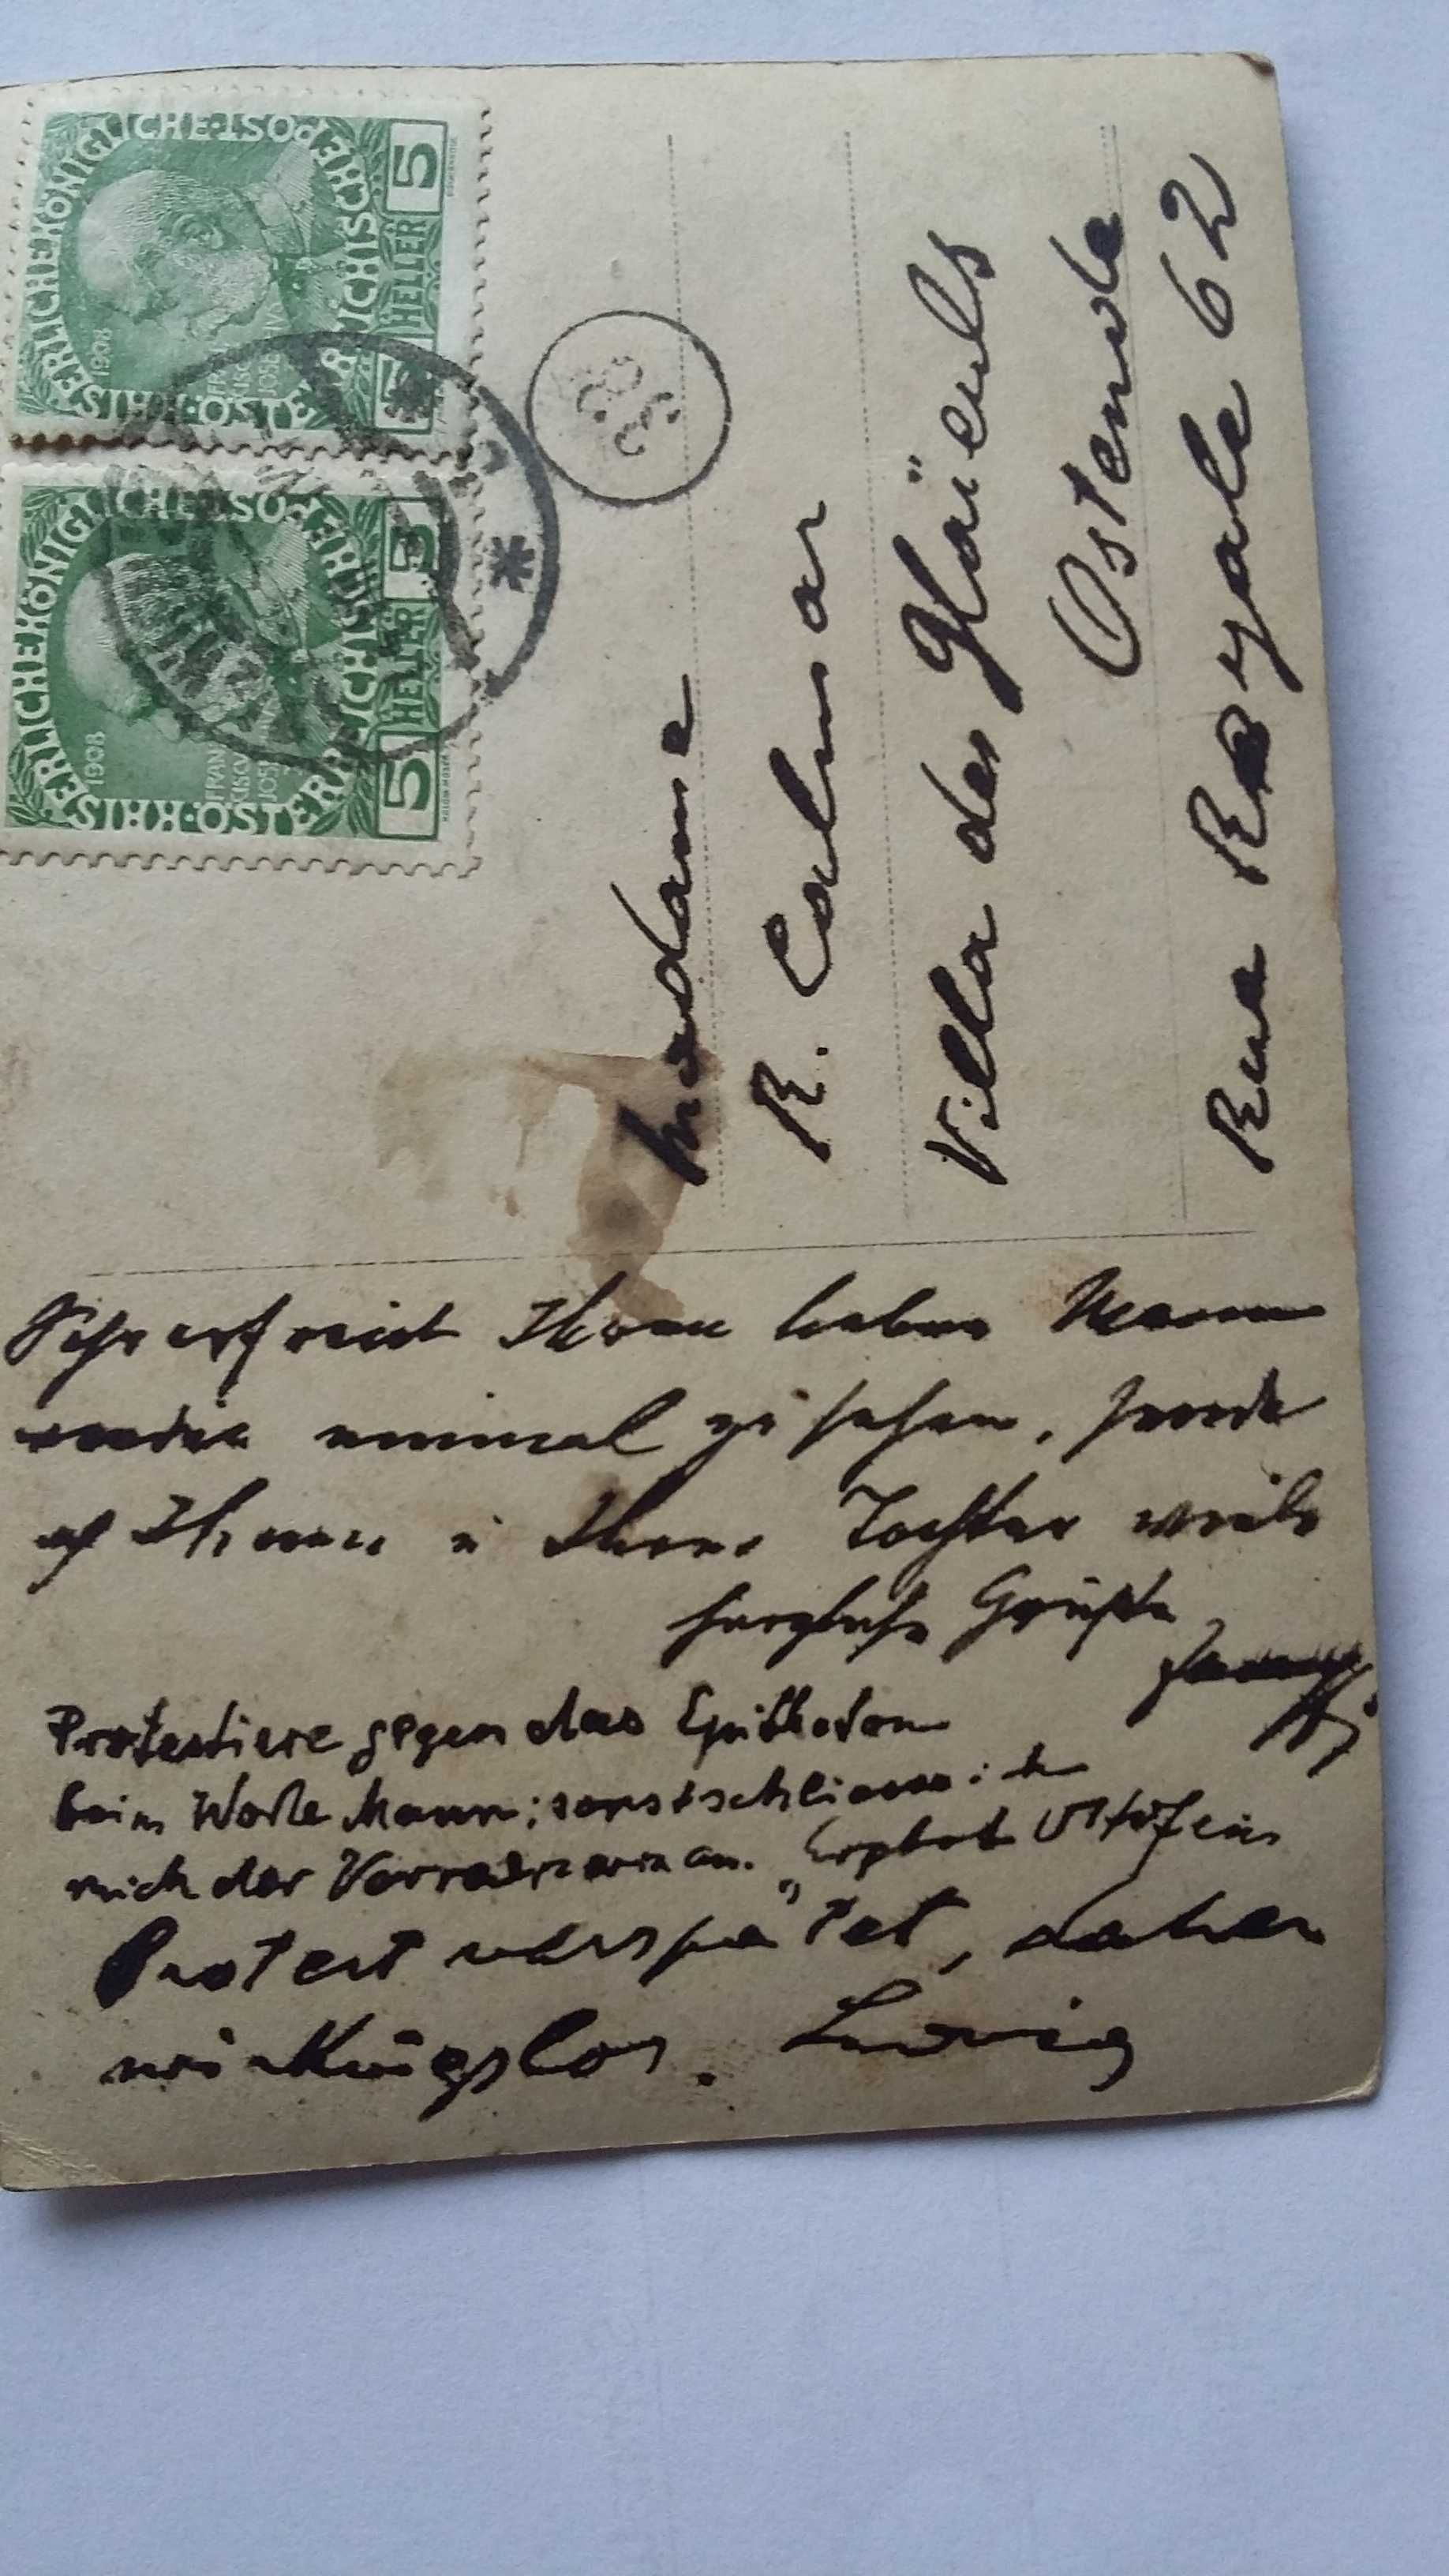 KAISERLICHEKÖNIGLICHE·ÖSTERREICHISCHE·POST
1908
5 HELLER 5
KAISERLICHEKÖNIGLICHE·ÖSTERREICHISCHE·POST
1908
5 HELLER 5
38
Madame
R. Calmar
Villa des Glaïeuls
Ostende
Rue Royale 62
Sehr erfreut Ihren lieben Mann
wieder einmal zu sehen, sende
ich Ihnen u Ihrer Tochter viele
herzliche Grüße
Protestiere gegen das Epitheton
beim Worte Mann; sonst schliesse ich
mich der Vorrednerin an.
Protest verspätet, daher
wirkungslos. Ludwig